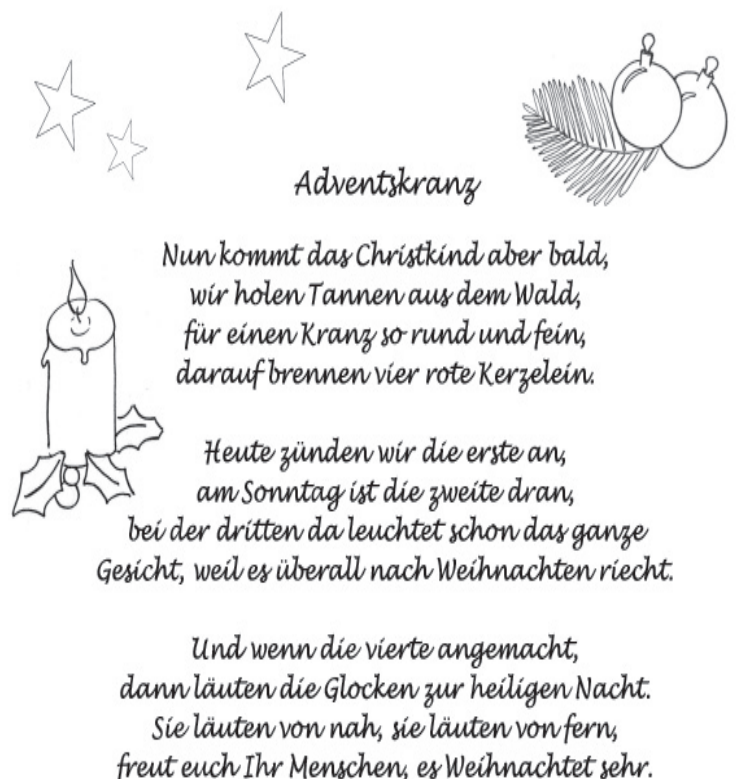 Adventskranz
Nun kommt das Christkind aber bald,
wir holen Tannen aus dem Wald,
für einen Kranz so rund und fein,
darauf brennen vier rote Kerzelein.
Heute zünden wir die erste an,
am Sonntag ist die zweite dran,
bei der dritten da leuchtet schon das ganze
Gesicht, weil es überall nach Weihnachten riecht.
Und wenn die vierte angemacht,
dann läuten die Glocken zur heiligen Nacht.
Sie läuten von nah, sie läuten von fern,
freut euch Ihr Menschen, es Weihnachtet sehr.